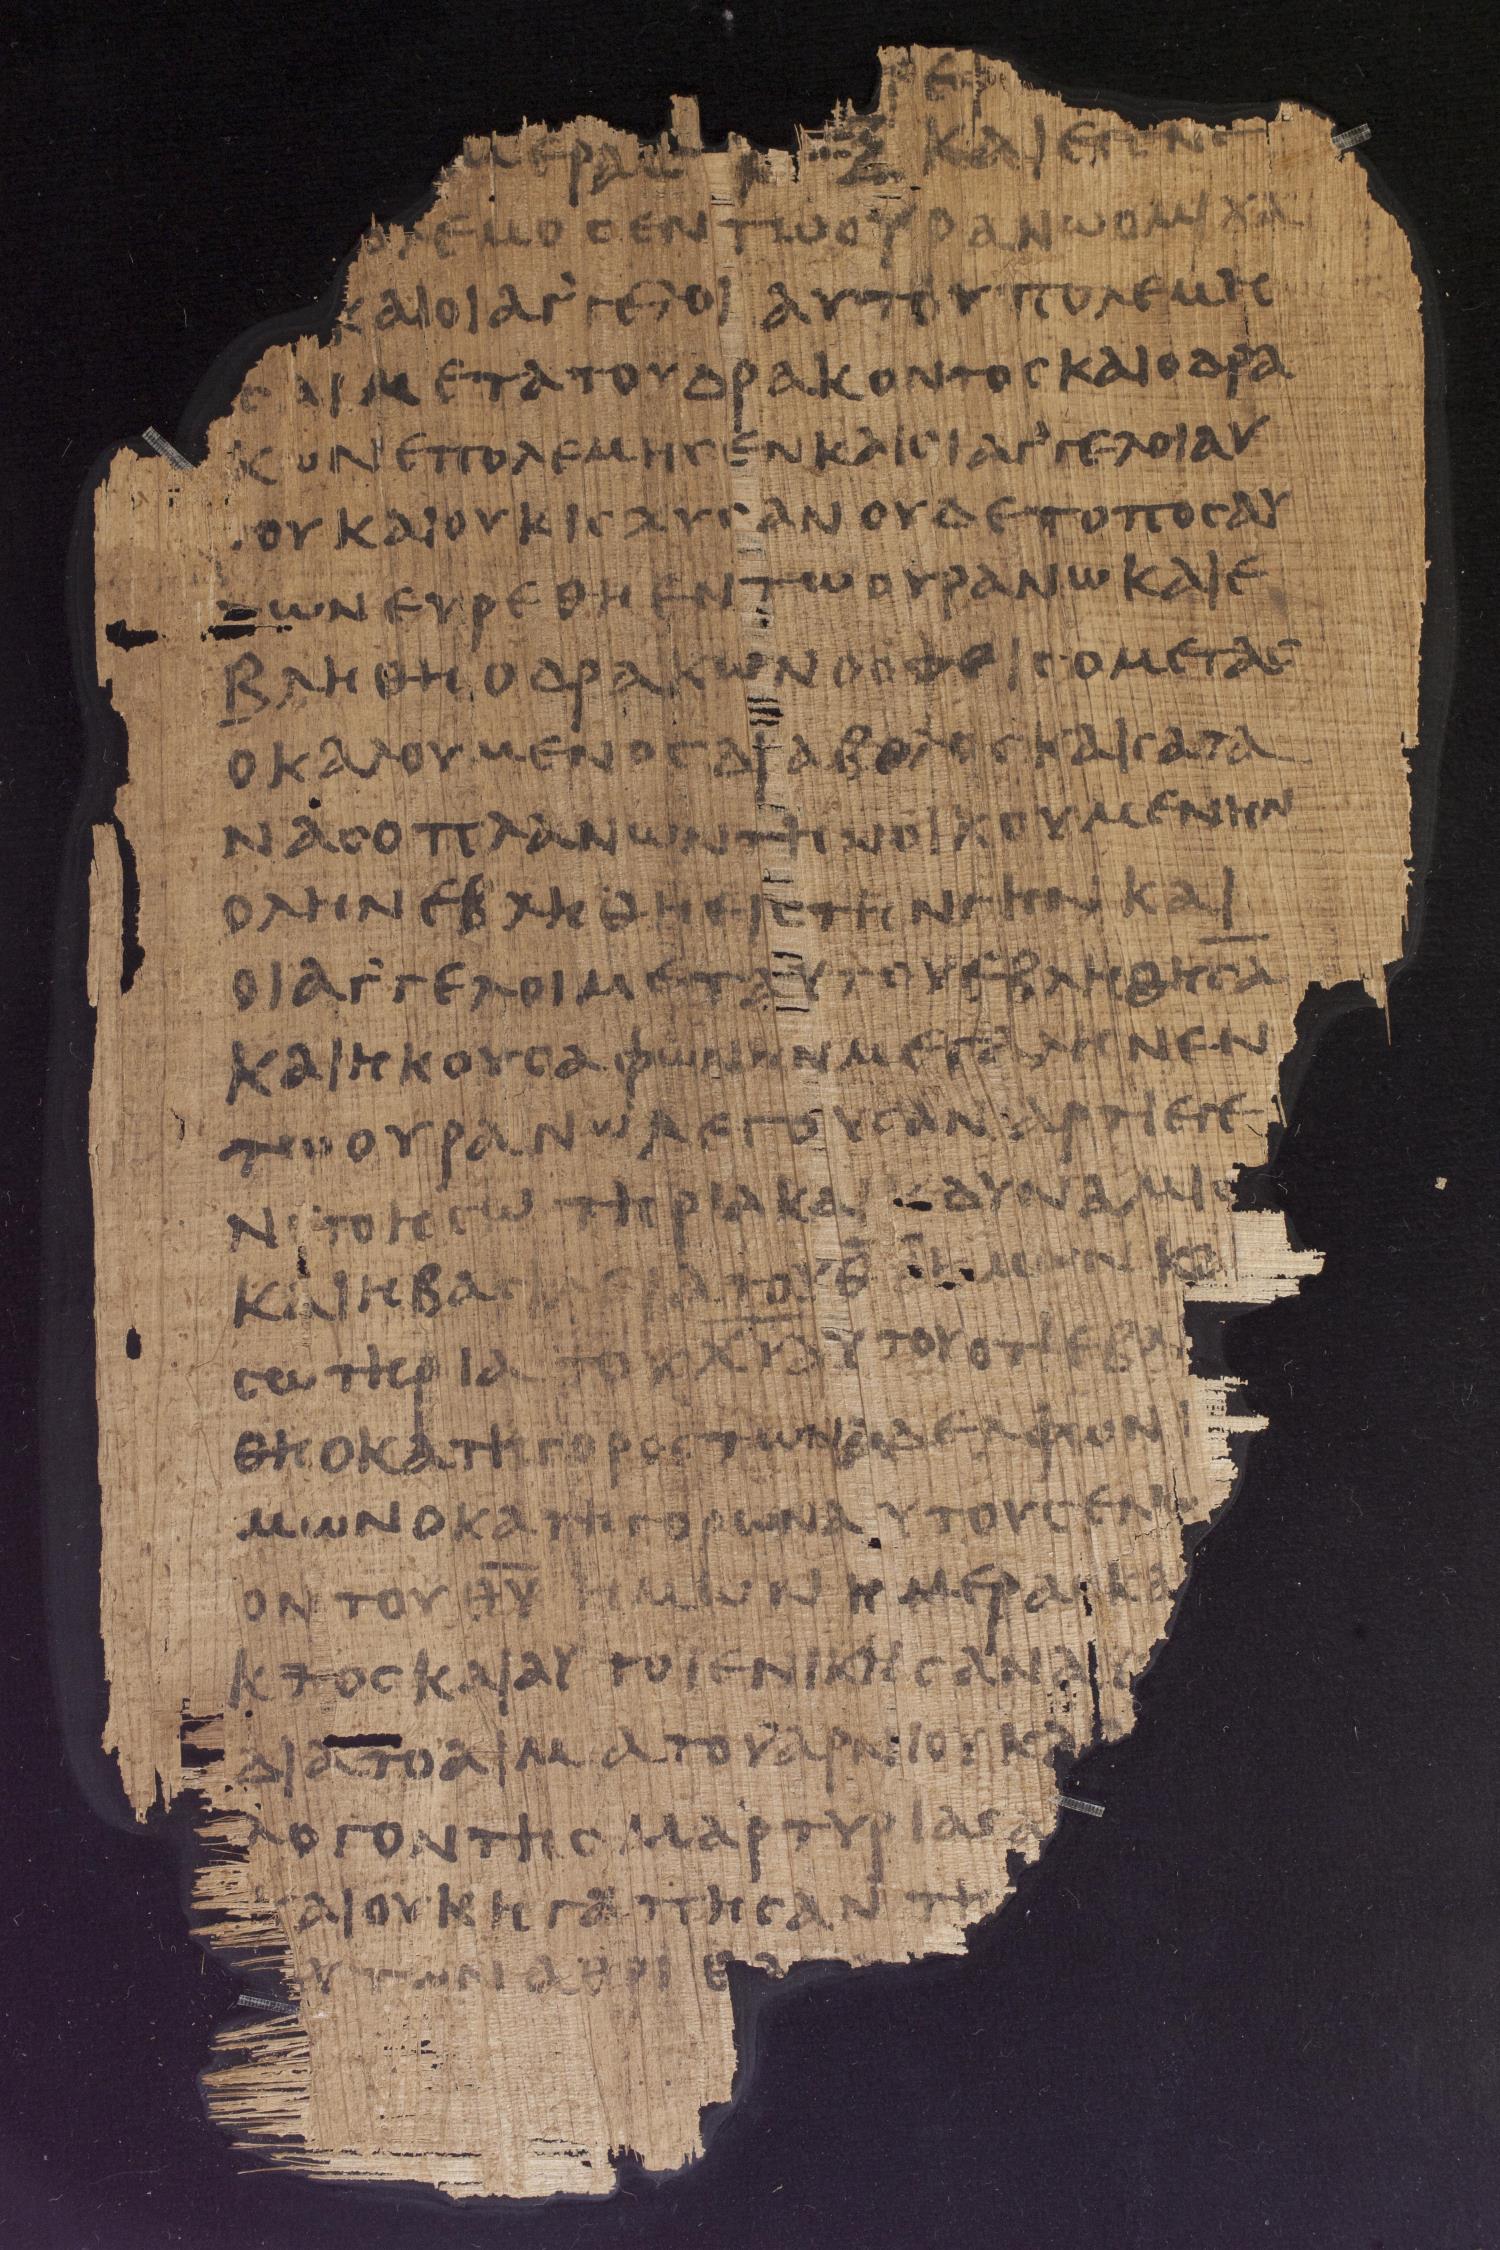 μεραι ξ και εγενε
ολεμος εν τω ουρανω ο μιχα
και οι αγ'γελοι αυτου πολεμη
σαι μετα του δρακοντος και ο δρα
κων επολεμησεν και οι αγ'γελοι αυ
του και ουκ ισχυσαν ουδε τοπος αυ
των ευρεθη εν τω ουρανω και ε
βληθη ο δρακων ο οφεις ο μεγας
ο καλουμενος διαβολος και σατα
νας ο πλανων την οικουμενην
ολην εβληθη εις την γην και
οι αγ'γελοι μετ αυτου εβληθησα
και ηκουσα φωνην μεγαλην εν
τω ουρανω λεγουσαν αρτι εγε
νετο η σωτηρια και η δυναμις
και η βασιλεια του θυ ημων κα
σωτηρια του χυ αυτου οτι εβλ
θη ο κατηγορος των αδελφων
μων ο κατηγορων αυτους ενω
ον του θυ ημων ημερας κα
κτος και αυτοι ενικησαν αυ
δια το αιμα του αρνιου κα
λογον της μαρτυριας α
και ουκ ηγαπησαν τη
υτων αχρι θα